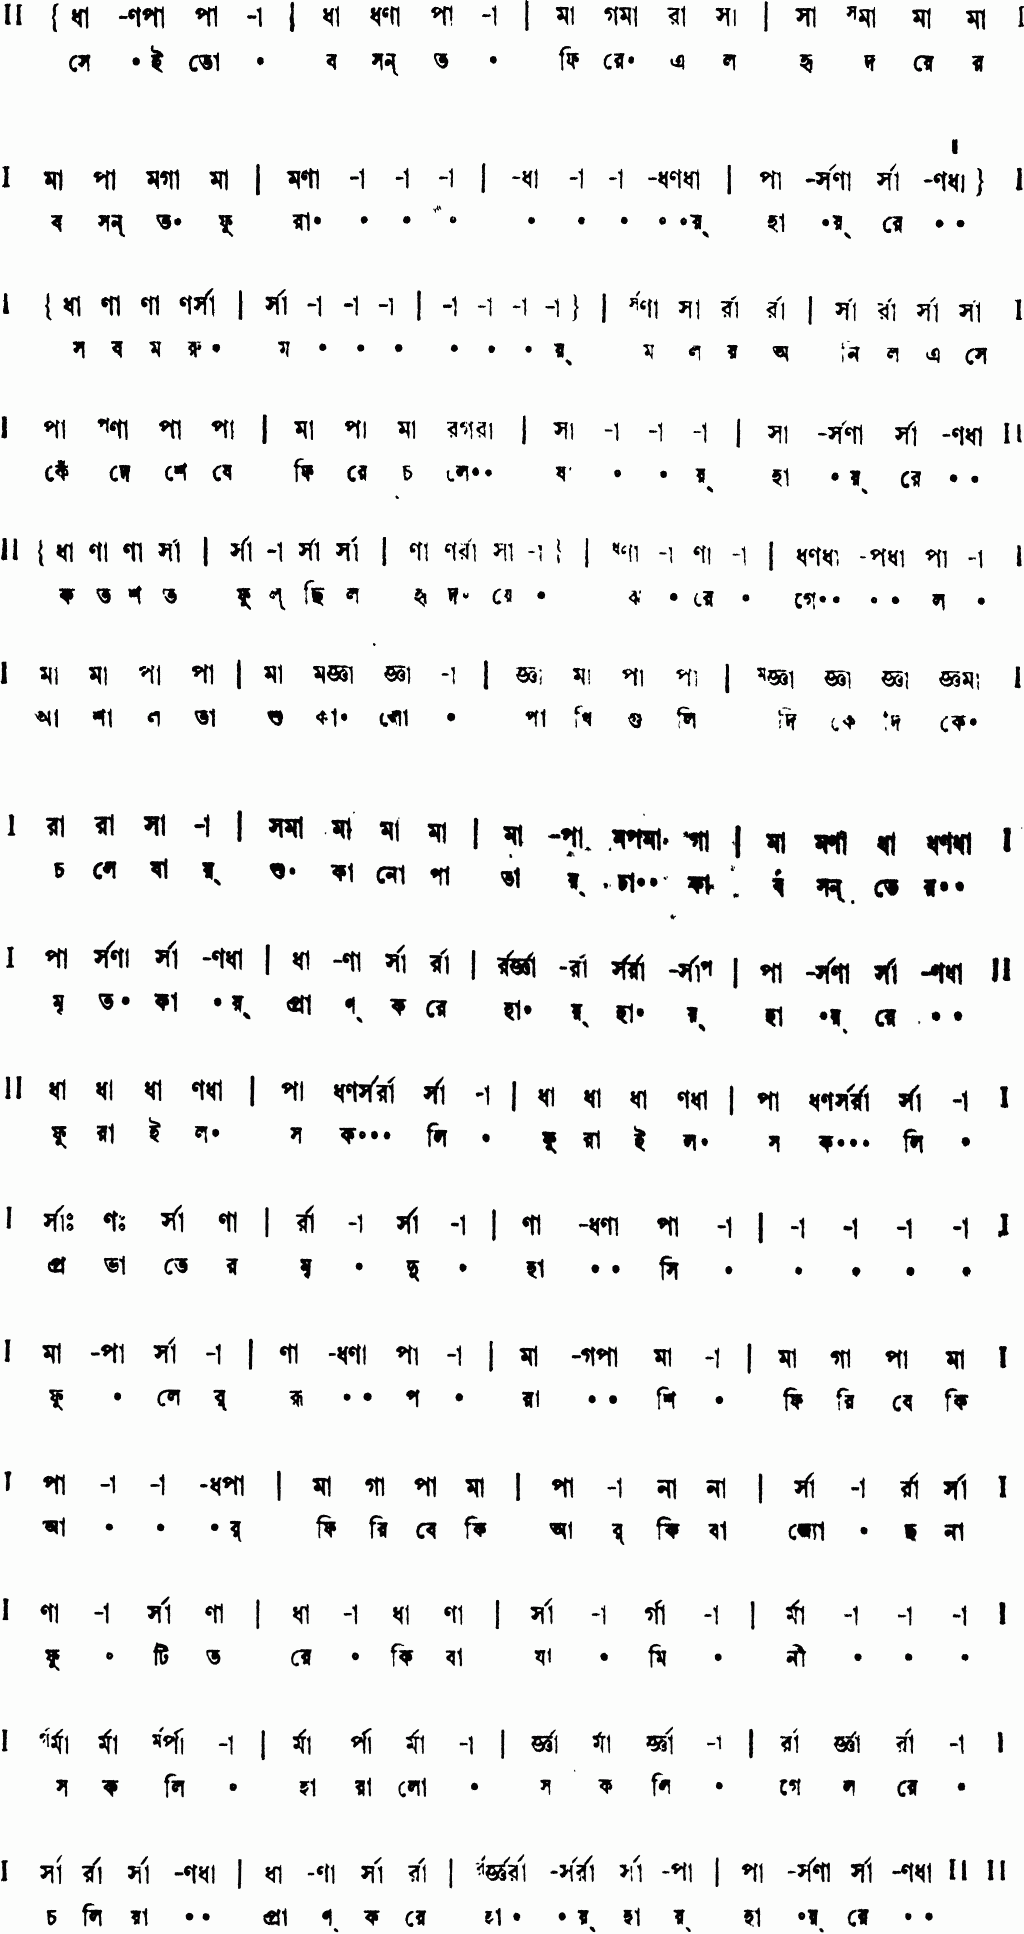 II { ধা -ণপা পা -া | ধা ধণা পা -া | মা গমা রা সা | সা ᳝সমা মা মা I
সে • ই তো • ব সন্ ত • ফি রে• এ ল হৃ দ য়ে র
I মা পা মগা মা | মণা -া -া -া | -ধা -া -া -ধণধা | পা -র্সণা র্সা -ণধা } I
ব সন্ ত• ফু রা• • • • • • • ••য়্ হা •য়্ রে ••
I { ধা ণা ণা ণর্সা | র্সা -া -া -া | -া -া -া -া } | র্সণা র্সা র্রা র্রা | র্সা র্রা র্সা র্সা I
স ব ম রু• ম • • • • • • য়্ ম ল য় অ নি ল এ সে
I পা পণা পা পা | মা পা মা রগরা | সা -া -া -া | সা -র্সণা র্সা -ণধা II
কেঁ দে শে ষে ফি রে চ লে•• যা • • য়্ হা •য়্ রে ••
II { ধা ণা ণা র্সা | র্সা -া র্সা র্সা | ণা ণর্রা র্সা -া } | ধণা -া ণা -া | ধণধা -পধা পা -া I
ক ত শ ত ফু ল্ ছি ল হৃ দ• য়ে • ঝ • রে • গে•• •• ল •
I মা মা পা পা | মা মজ্ঞা জ্ঞা -া | জ্ঞা মা পা পা | মজ্ঞা জ্ঞা জ্ঞা জ্ঞমা I
আ শা ল তা শু কা• লো • পা খি গু লি দি কে দি কে•
I রা রা সা -া | সমা মা মা মা | মা -পা মপমা গা | মা মণা ধা ধণধা I
চ লে যা য়্ শু• কা নো পা তা য়্ ঢা•• কা ব সন্ তে র••
I পা র্সণা র্সা -ণধা | ধা -ণা র্সা র্রা | র্রর্জ্ঞা -র্রা র্সর্রা -র্সাপ | পা -র্সণা র্সা -ণধা II
মৃ ত• কা •য়্ প্রা ণ্ ক রে হা• য়্ হা• য়্ হা •য়্ রে ••
II ধা ধা ধা ণধা | পা ধণর্সর্রা র্সা -া | ধা ধা ধা ণধা | পা ধণর্সর্রা র্সা -া I
ফু রা ই ল• স ক••• লি • ফু রা ই ল• স ক••• লি •
I র্সাঃ ণঃ র্সা ণা | র্রা -া র্সা -া | ণা -ধণা পা -া | -া -া -া -া I
প্র ভা তে র মৃ • দু • হা •• সি • • • • •
I মা -পা র্সা -া | ণা -ধণা পা -া | মা -গপা মা -া | মা গা পা মা I
ফু • লে র্ রূ •• প • রা •• শি • ফি রি বে কি
I পা -া -া -ধপা | মা গা পা মা | পা -া না না | র্সা -া র্রা র্সা I
আ • • •র্ ফি রি বে কি আ র্ কি বা জ্যো • ছ না
I ণা -া র্সা ণা | ধা -া ধা ণা | র্সা -া র্গা -া | র্মা -া -া -া I
ফু • টি ত রে • কি বা যা • মি • নী • • •
I র্গর্মা র্মা র্মর্পা -া | র্মা র্পা র্মা -া | র্জ্ঞা র্মা র্জ্ঞা -া | র্রা র্জ্ঞা র্রা -া I
স ক লি • হা রা লো • স ক লি • গে ল রে •
I র্সা র্রা র্সা -ণধা | ধা -ণা র্সা র্রা | র্রর্জ্ঞর্রা -র্সর্রা র্সা -পা | পা -র্সণা র্সা -ণধা II II
চ লি য়া •• প্রা ণ্ ক রে হা• •য়্ হা য়্ হা •য়্ রে ••